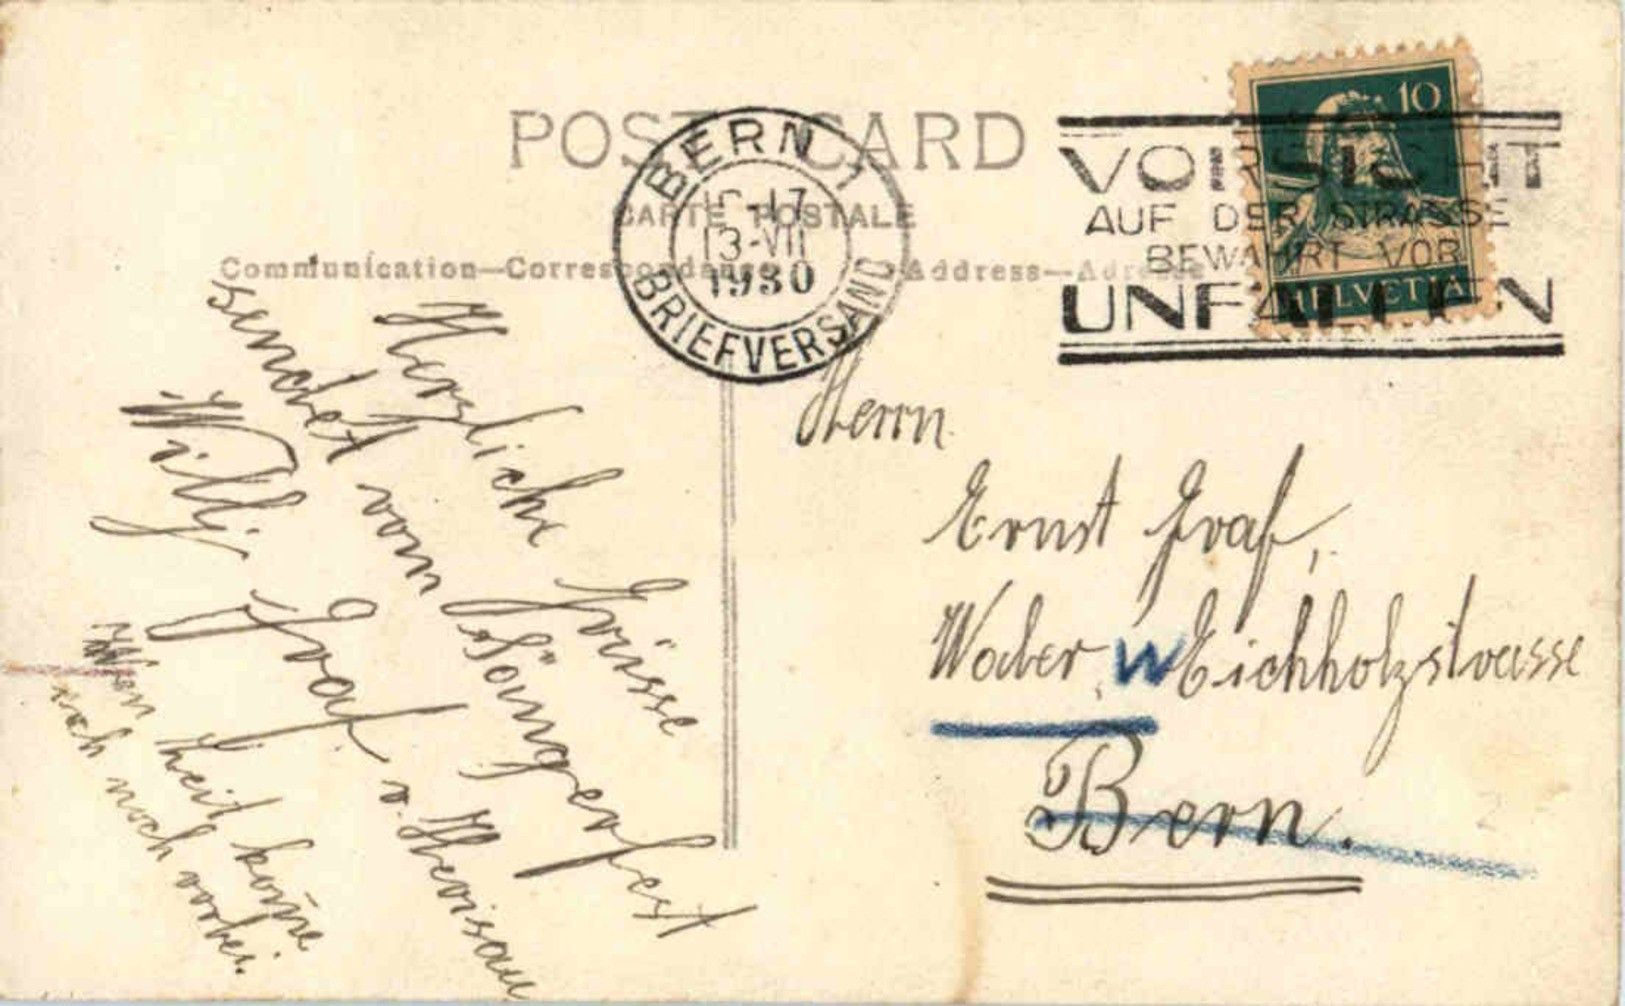 POST CARD
CARTE POSTALE
Communication—Correspondance
Address—Adresse
BERN 1
-17
13-VII
1930
BRIEFVERSAND
10
HELVETIA
VORSICHT
AUF DER STRASSE
BEWAHRT VOR
UNFÄLLEN
Herzliche Grüsse
sendet vom Sängerfest
Willj. Graf. v. Herisau
Wen Zeit kome
euch noch vorbei.
Herrn
Ernst Graf,
Waber, W Eichholzstrasse
Bern.